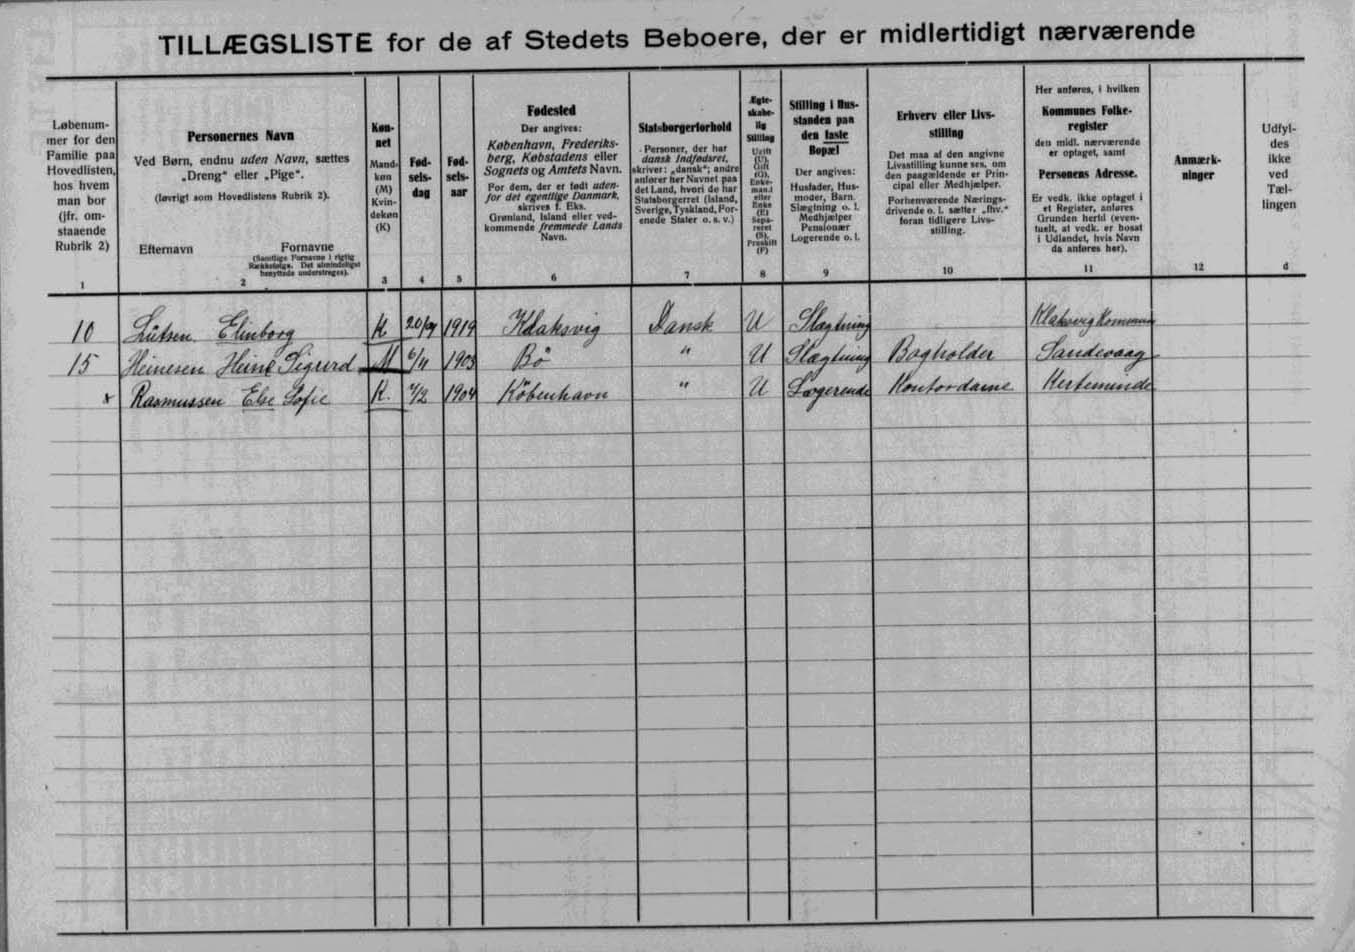 TILLÆGSLISTE for de af Stedets Beboere, der er midlertidigt nærværende
Løbenum-
mer for den
Familie paa
Hovedlisten,
hos hvem
man bor
(jfr. om-
staaende
Rubrik 2)
1
Personernes Navn
Ved Børn, endnu uden Navn, sættes
„Dreng“ eller „Pige“.
(Iøvrigt som Hovedlistens Rubrik 2).
Efternavn Fornavne
(Samtlige Fornavne i rigtig
Rækkefølge. Det almindeligst
benyttede understreges).
2
Køn-
net
Mand-
køn
(M)
Kvin-
dekøn
(K)
3
Fød-
sels-
dag
4
Fød-
sels-
aar
5
Fødested
Der angives:
København, Frederiks-
berg, Købstadens eller
Sognets og Amtets Navn.
For dem, der er født uden-
for det egentlige Danmark,
skrives f. Eks.
Grønland, Island eller ved-
kommende fremmede Lands
Navn.
6
Statsborgerforhold
Personer, der har
dansk Indfødsret,
skriver: „dansk“; andre
anfører her Navnet paa
det Land, hvori de har
Statsborgerret (Island,
Sverige, Tyskland, For-
enede Stater o. s. v.)
7
Ægte-
skabe-
lig
Stilling
Ugift
(U),
Gift
(G),
Enke-
mand
eller
Enke
(E)
Sepa-
reret
(S),
Fraskilt
(F)
8
Stilling i Hus-
standen paa
den faste
Bopæl
Der angives:
Husfader, Hus-
moder, Barn,
Slægtning o. l.
Medhjælper
Pensionær
Logerende o. l.
9
Erhverv eller Livs-
stilling
Det maa af den angivne
Livsstilling kunne ses, om
den paagældende er Prin-
cipal eller Medhjælper.
Forhenværende Nærings-
drivende o. l. sætter „fhv.“
foran tidligere Livs-
stilling.
10
Her anføres, i hvilken
Kommunes Folke-
register
den midl. nærværende
er optaget, samt
Personens Adresse.
Er vedk. ikke optaget i
et Register, anføres
Grunden hertil (even-
tuelt, at vedk. er bosat
i Udlandet, hvis Navn
da anføres her).
11
Anmærk-
ninger
12
Udfyl-
des
ikke
ved
Tæl-
lingen
d
10 Elinborg K. 1919 Klaksvig Dansk U Slægtning Klaksvig Kommune
15 Heinesen Heine Sigurd M 6/11 1903 Bø " U Slægtning Bogholder Sandevaag
x Rasmussen Else Sofie K. 1904 København " U Logerende Kontordame Kerteminde